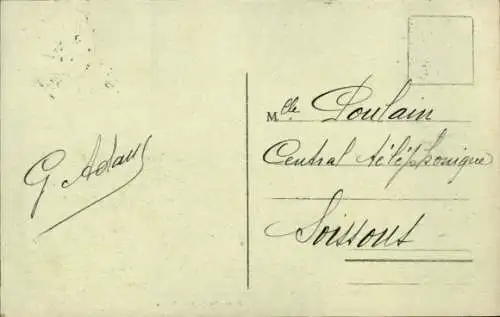 G Adam
Mlle. Poulain
Central téléphonique
Soissons